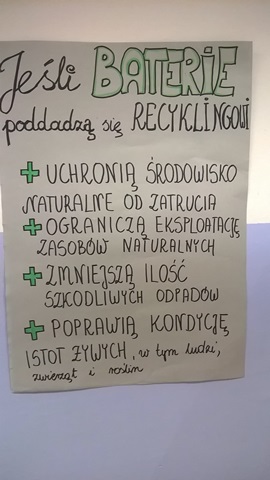 Jeśli BATERIE
poddadzą się RECYKLINGOWI
+ UCHRONIĄ ŚRODOWISKO
NATURALNE OD ZATRUCIA
+ OGRANICZĄ EKSPLOATACJĘ
ZASOBÓW NATURALNYCH
+ ZMNIEJSZĄ ILOŚĆ
SZKODLIWYCH ODPADÓW
+ POPRAWIĄ KONDYCJĘ
ISTOT ŻYWYCH, w tym ludzi,
zwierząt i roślin